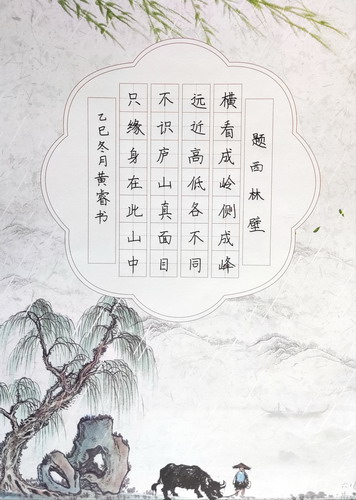 题西林壁
横看成岭侧成峰
远近高低各不同
不识庐山真面目
只缘身在此山中
乙巳冬月黄睿书